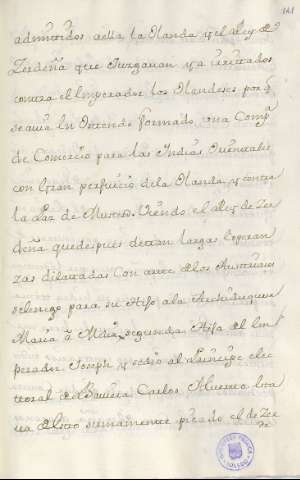 161
admittidos à ella la Olanda y el Rey de
Zerdeña que Juzgauan ya irritados
contra el Emperador, los Olandeses por q̃
se auia en Ostende formado una Comp.ª
de Comercio para las Indias Orientales
con gran perjuicio dela Olanda, y contra
la Paz de Munster. Viendo el Rey de Zer
deña que despues de tan largas Esperan
zas dilatadas con arte de los Austriacos
se le nego para su Hijo ala Archiduquesa
Maria segunda Hija del Em
perador Joseph y se dio al Principe elec
toral de Baviera Carlos Alberto
sumamente picado el de Zer